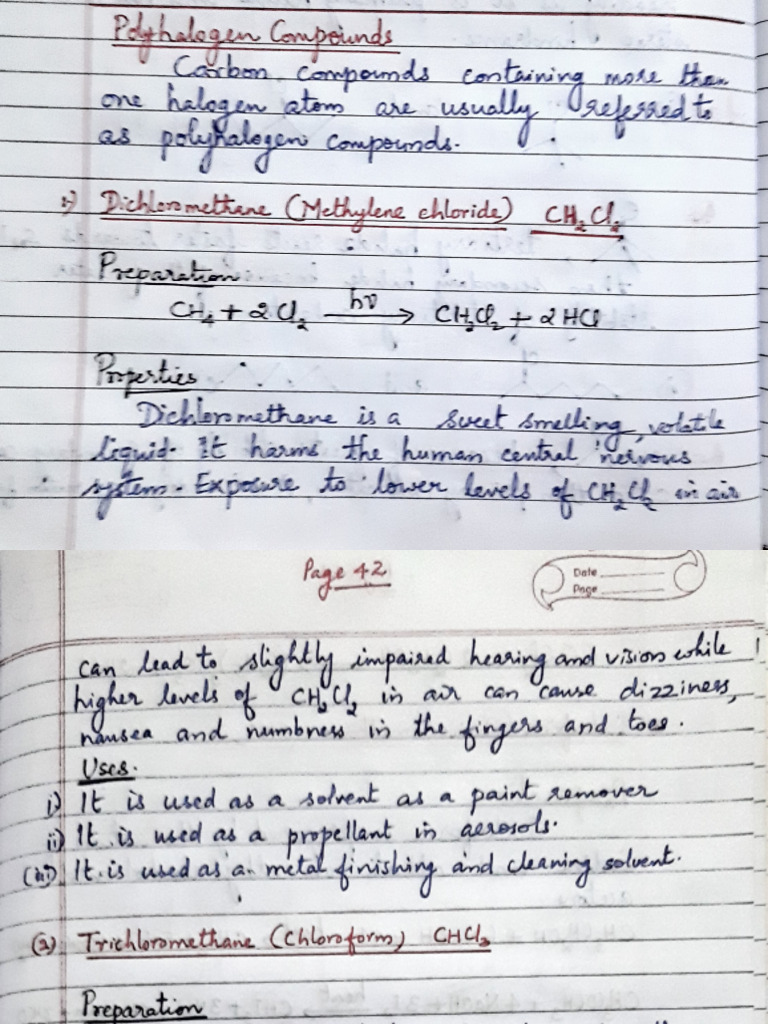 Polyhalogen Compounds
Carbon compounds containing more than
one halogen atom are usually referred to
as polyhalogen compounds.
1) Dichloromethane (Methylene chloride) CH₂Cl₂
Preparation
CH₄ + 2Cl₂ —hν→ CH₂Cl₂ + 2HCl
Properties
Dichloromethane is a sweet smelling, volatile
liquid. It harms the human central nervous
system. Exposure to lower levels of CH₂Cl₂ in air
Page 42
Date
Page
can lead to slightly impaired hearing and vision while
higher levels of CH₂Cl₂ in air can cause dizziness,
nausea and numbness in the fingers and toes.
Uses.
i) It is used as a solvent as a paint remover
ii) It is used as a propellant in aerosols.
(iii) It is used as a metal finishing and cleaning solvent.
(2) Trichloromethane (Chloroform) CHCl₃
Preparation